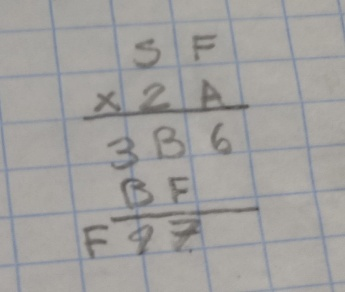 5 F
x 2 A
3 B 6
B F
F 9 7